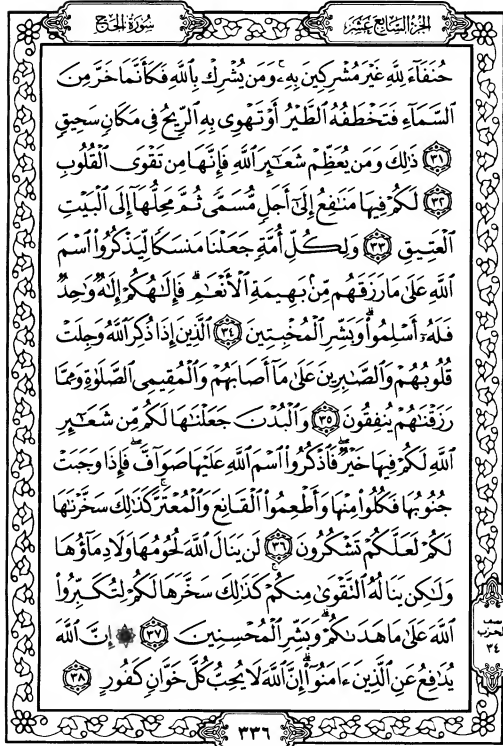 سُورَةُ الحَجِّ
الجُزْءُ السَّابِعَ عَشَرَ
حُنَفَآءَ لِلَّهِ غَيْرَ مُشْرِكِينَ بِهِۦۚ وَمَن يُشْرِكْ بِٱللَّهِ فَكَأَنَّمَا خَرَّ مِنَ
ٱلسَّمَآءِ فَتَخْطَفُهُ ٱلطَّيْرُ أَوْ تَهْوِى بِهِ ٱلرِّيحُ فِى مَكَانٍ سَحِيقٍ
٣١ ذَٰلِكَ وَمَن يُعَظِّمْ شَعَـٰٓئِرَ ٱللَّهِ فَإِنَّهَا مِن تَقْوَى ٱلْقُلُوبِ
٣٢ لَكُمْ فِيهَا مَنَـٰفِعُ إِلَىٰٓ أَجَلٍ مُّسَمًّى ثُمَّ مَحِلُّهَآ إِلَى ٱلْبَيْتِ
ٱلْعَتِيقِ ٣٣ وَلِكُلِّ أُمَّةٍ جَعَلْنَا مَنسَكًا لِّيَذْكُرُوا۟ ٱسْمَ
ٱللَّهِ عَلَىٰ مَا رَزَقَهُم مِّنۢ بَهِيمَةِ ٱلْأَنْعَـٰمِۗ فَإِلَـٰهُكُمْ إِلَـٰهٌ وَٰحِدٌ
فَلَهُۥٓ أَسْلِمُوا۟ۗ وَبَشِّرِ ٱلْمُخْبِتِينَ ٣٤ ٱلَّذِينَ إِذَا ذُكِرَ ٱللَّهُ وَجِلَتْ
قُلُوبُهُمْ وَٱلصَّـٰبِرِينَ عَلَىٰ مَآ أَصَابَهُمْ وَٱلْمُقِيمِى ٱلصَّلَوٰةِ وَمِمَّا
رَزَقْنَـٰهُمْ يُنفِقُونَ ٣٥ وَٱلْبُدْنَ جَعَلْنَـٰهَا لَكُم مِّن شَعَـٰٓئِرِ
ٱللَّهِ لَكُمْ فِيهَا خَيْرٌۖ فَٱذْكُرُوا۟ ٱسْمَ ٱللَّهِ عَلَيْهَا صَوَآفَّۖ فَإِذَا وَجَبَتْ
جُنُوبُهَا فَكُلُوا۟ مِنْهَا وَأَطْعِمُوا۟ ٱلْقَانِعَ وَٱلْمُعْتَرَّۚ كَذَٰلِكَ سَخَّرْنَـٰهَا
لَكُمْ لَعَلَّكُمْ تَشْكُرُونَ ٣٦ لَن يَنَالَ ٱللَّهَ لُحُومُهَا وَلَا دِمَآؤُهَا
وَلَـٰكِن يَنَالُهُ ٱلتَّقْوَىٰ مِنكُمْۚ كَذَٰلِكَ سَخَّرَهَا لَكُمْ لِتُكَبِّرُوا۟
ٱللَّهَ عَلَىٰ مَا هَدَىٰكُمْۗ وَبَشِّرِ ٱلْمُحْسِنِينَ ٣٧ ۞ إِنَّ ٱللَّهَ
يُدَٰفِعُ عَنِ ٱلَّذِينَ ءَامَنُوٓا۟ۗ إِنَّ ٱللَّهَ لَا يُحِبُّ كُلَّ خَوَّانٍ كَفُورٍ ٣٨
نصف
الحزب
٣٤
٣٣٦